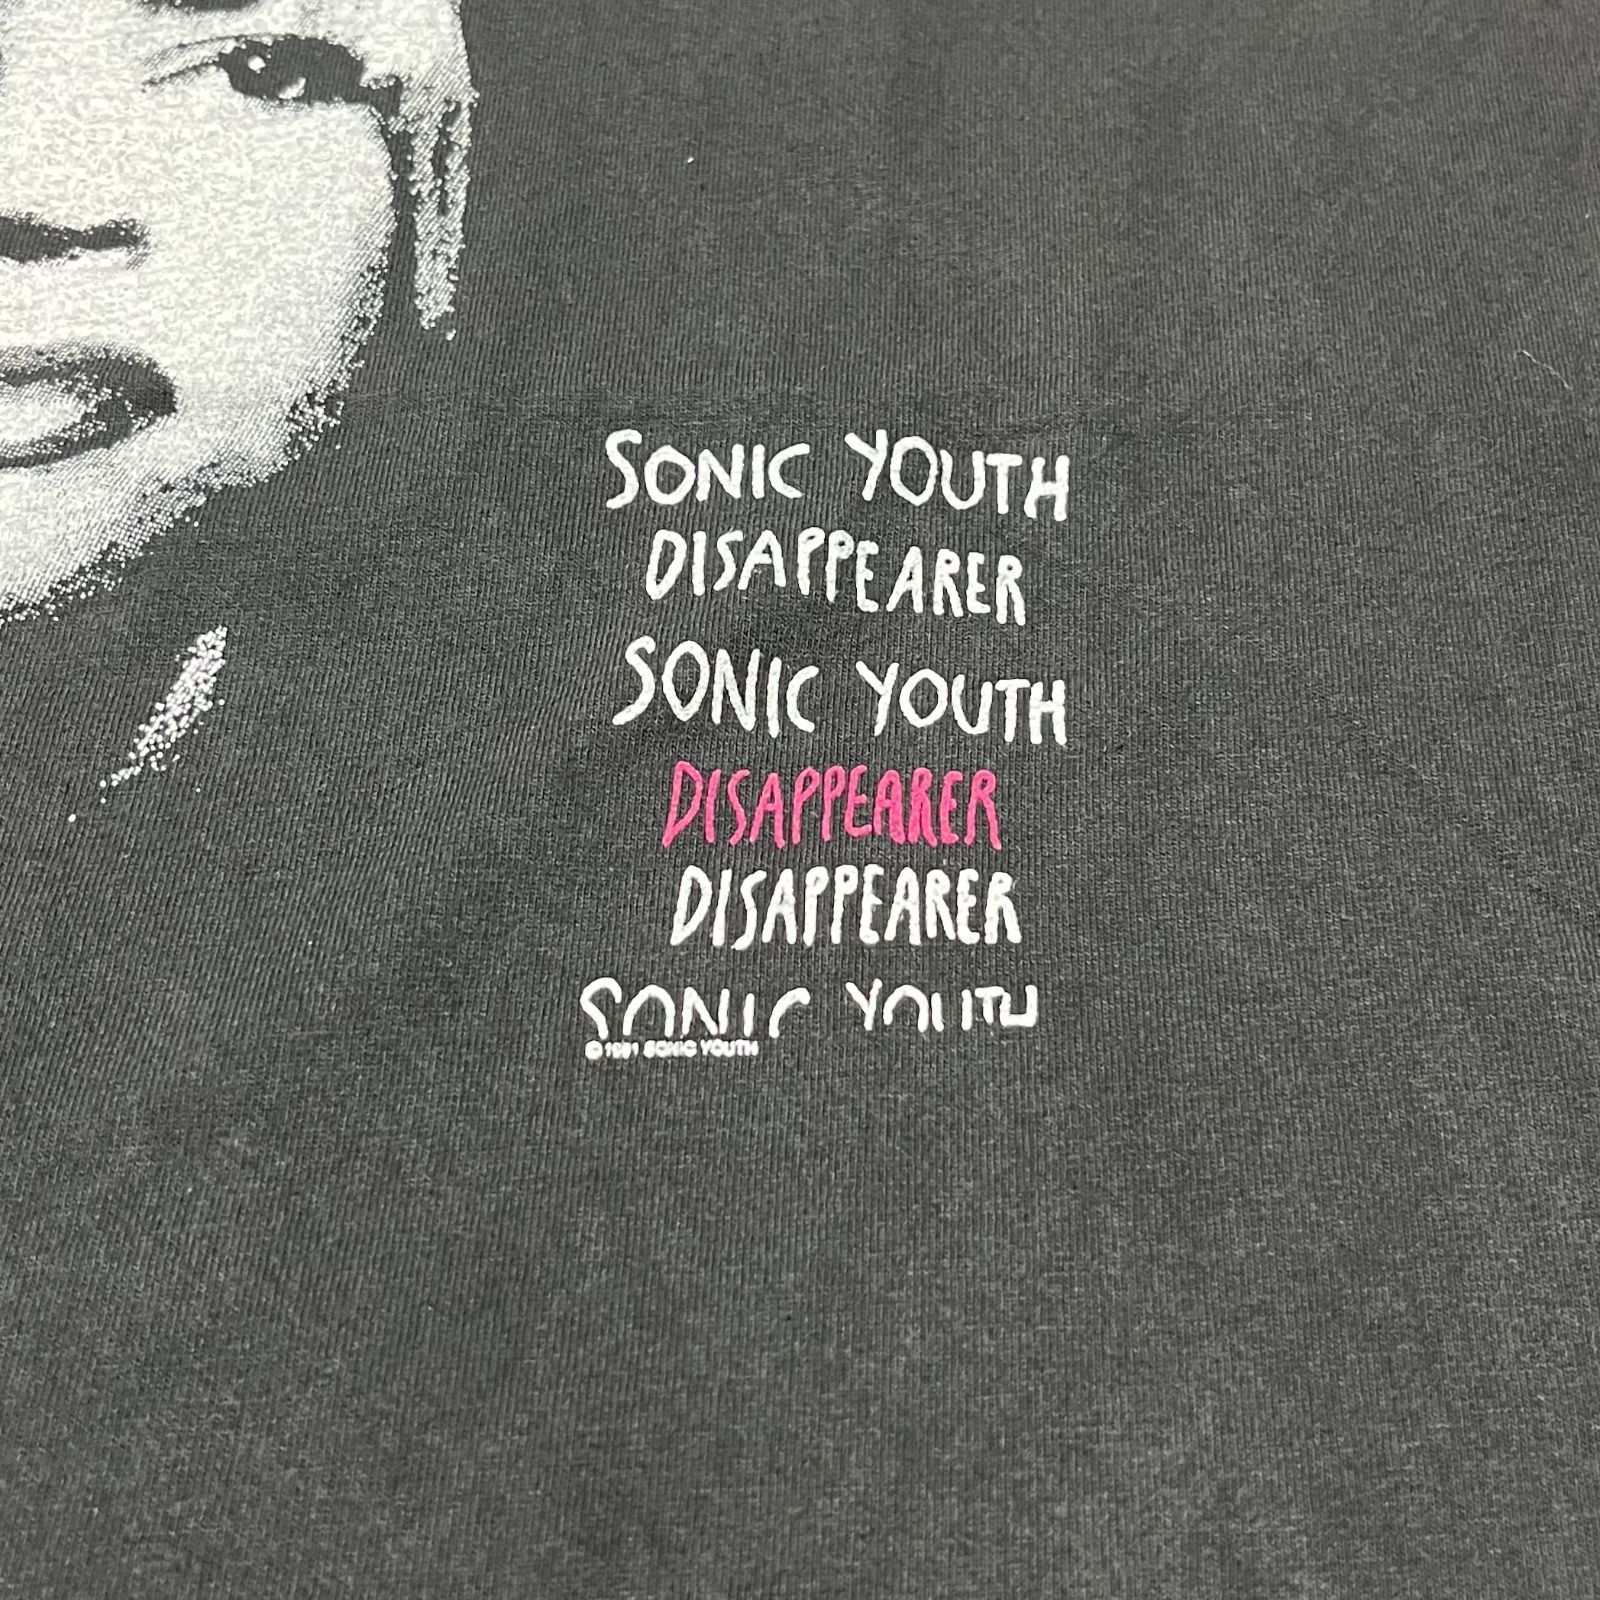 SONIC YOUTH
DISAPPEARER
SONIC YOUTH
DISAPPEARER
DISAPPEARER
SONIC YOUTH
© 1991 SONIC YOUTH